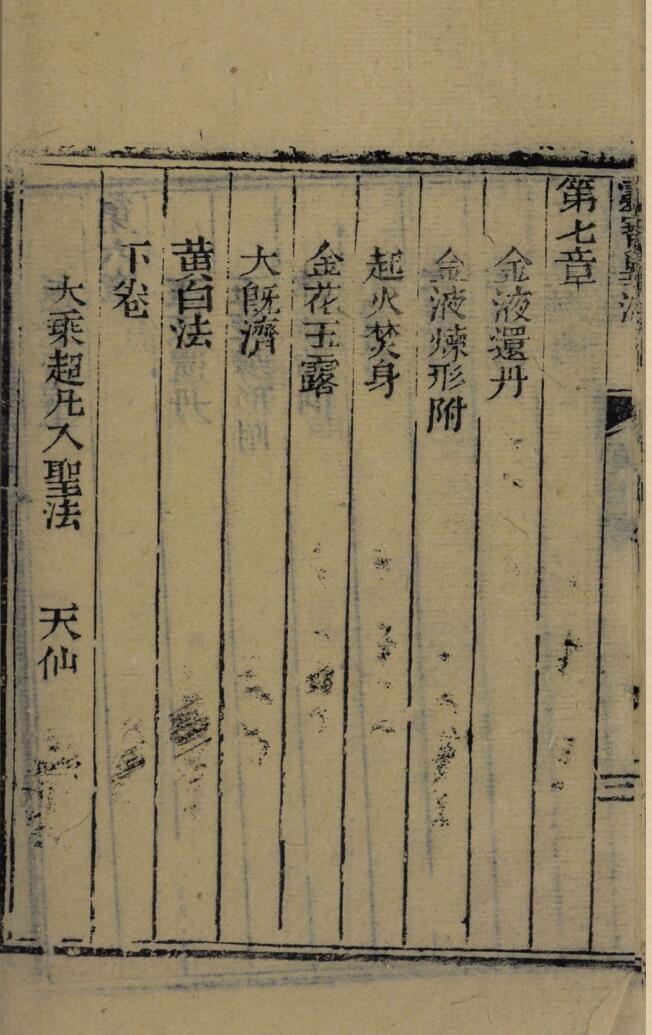 靈寶畢法
三
第七章
金液還丹
金液煉形附
起火焚身
金花玉露
大旣濟
黃白法
下卷
大乘超凡入聖法 天仙